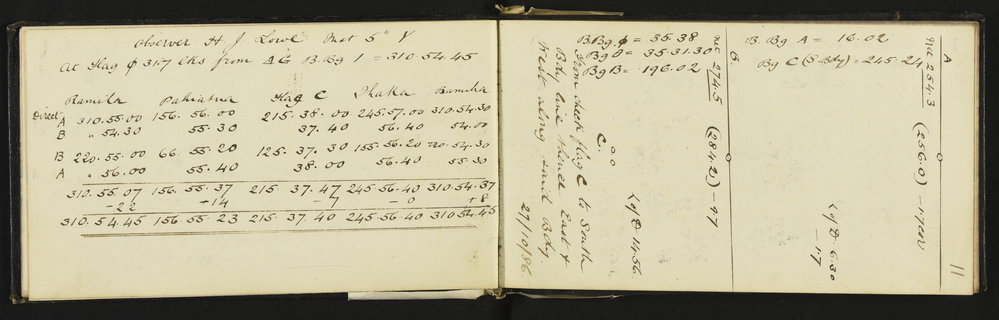 Observer H J Lowe Inst 5" V
At Flag φ 31.7 lks from AG B. Bg 1 = 310 54.45
Ramika Pahiatua Flag C Ihaka Ramika
Direct A 310.55.00 156. 56. 00 215. 38. 00 245.57.00 310.54.30
B " 54.30 55.30 37. 40 56.40 54.00
B 220.55.00 66. 55.20 125. 37. 30 155.56.20 220.54.30
A " 56.00 55.40 38.00 56.40 55.30
310.55.07 156. 55. 37 215. 37.47 245 56.40 310.54.37
-22 +14 -7 -0 +8
310. 54.45 156 55 23 215. 37. 40 245 56.40 310 54.45
B.Bg. φ = 35.38
Bg A = 35.31.30
Bg B = 196.02
From flag C to South
Bdy line should East &
West along said Bdy
27/10/86.
C.
∠ of D 14.56.
B.
274.5 (284.2) -97
B. Bg A = 16.02
Bg C (S. Bdy) = 245.24
A
254.3 (256.0)
∠ of D 6.30
-17
11